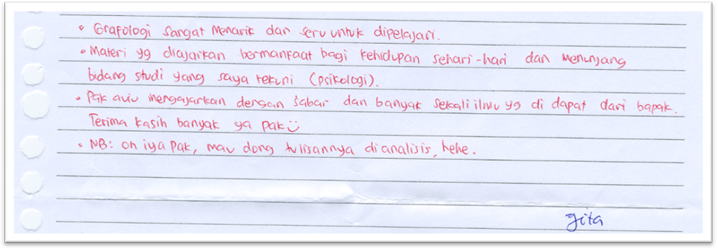 • Grafologi sangat menarik dan seru untuk dipelajari.
• Materi yg diajarkan bermanfaat bagi kehidupan sehari-hari dan menunjang
bidang studi yang saya tekuni (psikologi).
• Pak aviv mengajarkan dengan sabar dan banyak sekali ilmu yg di dapat dari bapak.
Terima kasih banyak ya pak☺
• NB: oh iya Pak, mau dong tulisannya dianalisis, hehe.
gita